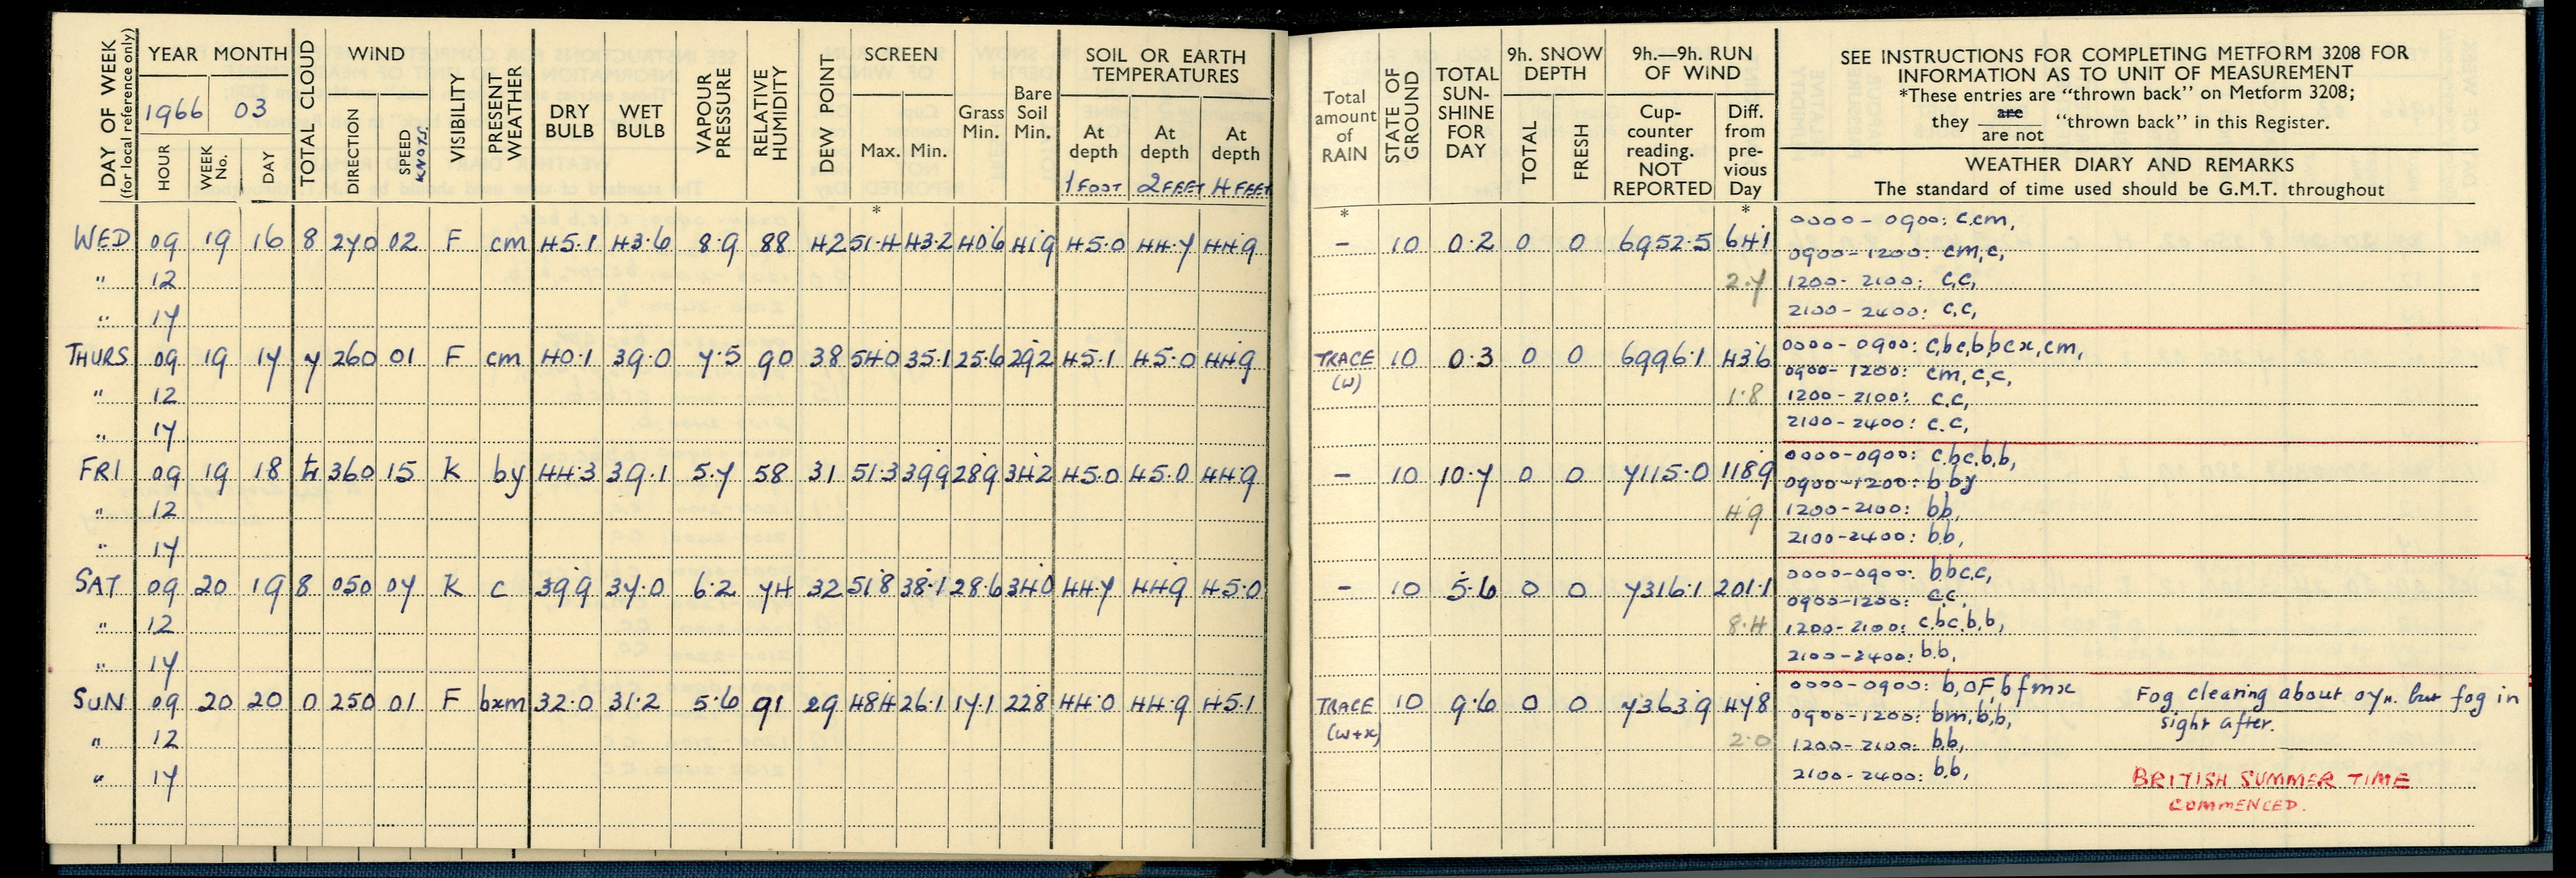 DAY OF WEEK (for local reference only)
YEAR MONTH
1966 03
HOUR
WEEK No.
DAY
TOTAL CLOUD
WIND
DIRECTION
SPEED KNOTS.
VISIBILITY
PRESENT WEATHER
DRY BULB
WET BULB
VAPOUR PRESSURE
RELATIVE HUMIDITY
DEW POINT
SCREEN
Max. Min.
Grass Min.
Bare Soil Min.
SOIL OR EARTH TEMPERATURES
At depth At depth At depth
1 FOOT 2 FEET 4 FEET
Total amount of RAIN
STATE OF GROUND
TOTAL SUN-SHINE FOR DAY
9h. SNOW DEPTH
TOTAL
FRESH
9h.—9h. RUN OF WIND
Cup-counter reading. NOT REPORTED
Diff. from pre-vious Day
SEE INSTRUCTIONS FOR COMPLETING METFORM 3208 FOR
INFORMATION AS TO UNIT OF MEASUREMENT
*These entries are “thrown back” on Metform 3208;
they are / are not “thrown back” in this Register.
WEATHER DIARY AND REMARKS
The standard of time used should be G.M.T. throughout
* * *
WED 09 19 16 8 270 02 F cm 45.1 43.6 8.9 88 42 51.4 43.2 40.6 41.9 45.0 44.7 44.9 – 10 0.2 0 0 6952.5 64.1 0000 – 0900: c.cm,
0900 – 1200: cm,c,
" 12 2.7 1200 - 2100: c,c,
" 17 2100 - 2400: c,c,
THURS 09 19 17 7 260 01 F cm 40.1 39.0 7.5 90 38 54.0 35.1 25.6 29.2 45.1 45.0 44.9 TRACE (w) 10 0.3 0 0 6996.1 43.6 0000 - 0900: c,bc,b,bcx,cm,
0900- 1200: cm, c,c,
" 12 1.8 1200 - 2100: c.c,
" 17 2100 - 2400: c.c,
FRI 09 19 18 360 15 K by 44.3 39.1 5.7 58 31 51.3 39.9 28.9 34.2 45.0 45.0 44.9 – 10 10.7 0 0 7115.0 118.9 0000-0900: c.bc.b.b,
0900-1200: b by
" 12 4.9 1200-2100: bb,
" 17 2100-2400: b.b,
SAT 09 20 19 8 050 07 K c 39.9 37.0 6.2 74 32 51.8 38.1 28.6 34.0 44.7 44.9 45.0 – 10 5.6 0 0 7316.1 201.1 0000-0900: b.bc.c,
0900-1200: c.c,
" 12 8.4 1200-2100: c.bc.b.b,
" 17 2100-2400: b.b,
SUN 09 20 20 0 250 01 F bxm 32.0 31.2 5.6 91 29 48.4 26.1 17.1 22.8 44.0 44.9 45.1 TRACE (w+x) 10 9.6 0 0 7363.9 47.8 0000-0900: b,OF,bfmx Fog clearing about 07h. but fog in
0900-1200: bm,b,b, sight after.
" 12 2.0 1200-2100: b.b,
" 17 2100-2400: b.b, BRITISH SUMMER TIME
COMMENCED.